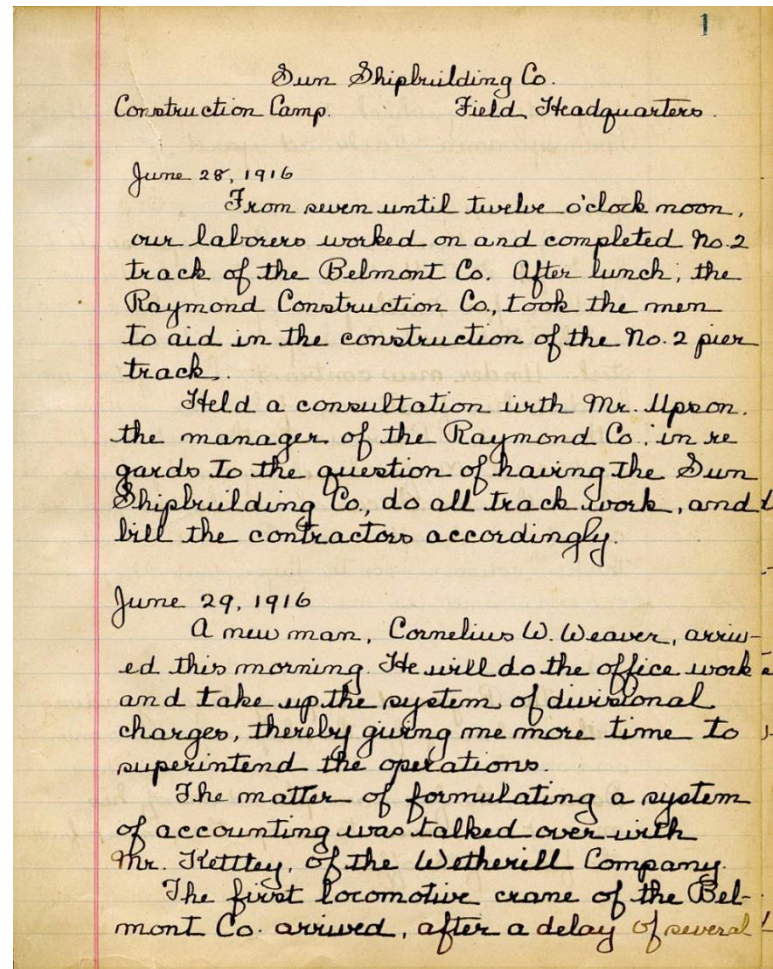 1
Sun Shipbuilding Co.
Construction Camp. Field Headquarters.
June 28, 1916
From seven until twelve o'clock noon,
our laborers worked on and completed No. 2
track of the Belmont Co. After lunch, the
Raymond Construction Co., took the men
to aid in the construction of the No. 2 pier
track.
Held a consultation with Mr. Upson,
the manager of the Raymond Co., in re
gards to the question of having the Sun
Shipbuilding Co., do all track work, and
bill the contractors accordingly.
June 29, 1916
A new man, Cornelius W. Weaver, arriv-
ed this morning. He will do the office work
and take up the system of divisional
charges, thereby giving me more time to
superintend the operations.
The matter of formulating a system
of accounting was talked over with
Mr. , of the Wetherill Company.
The first locomotive crane of the Bel-
mont Co. arrived, after a delay of several